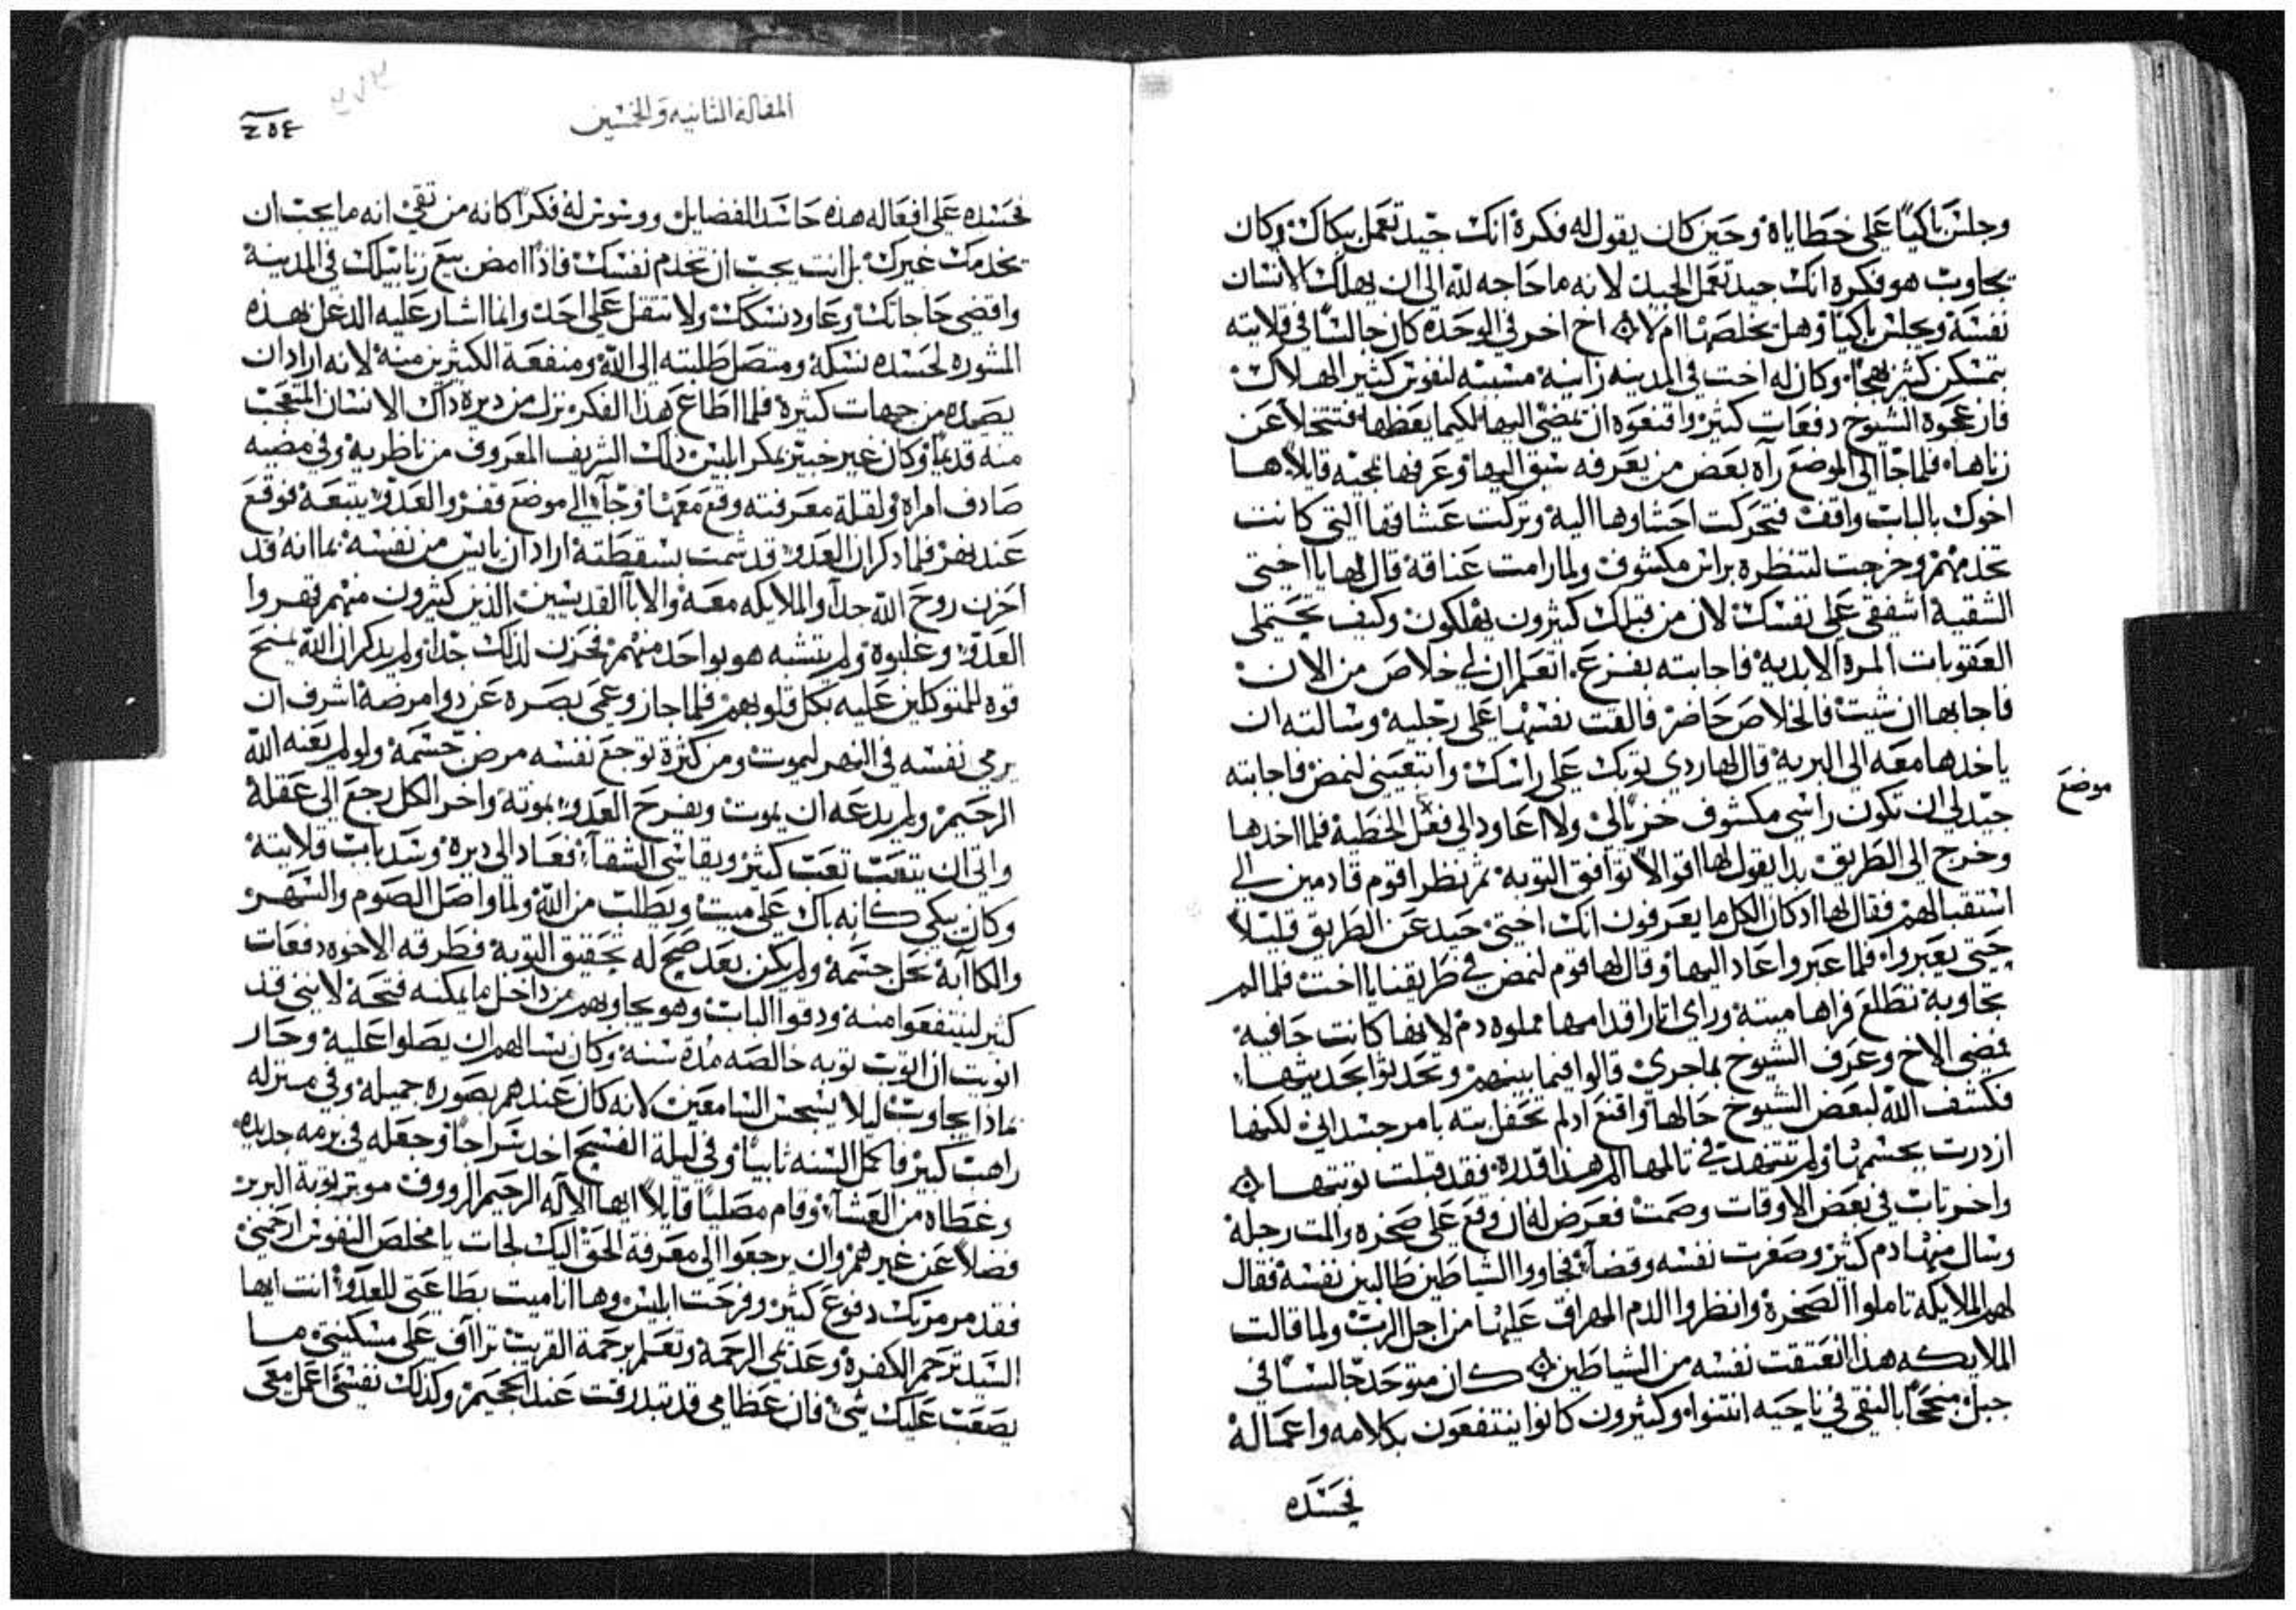 وجلس باكياً على خطاياه وحين كان يقول له فكره انك جيد تعمل ببكاك وكان
يجاوب هو فكره انك جيد تعمل الجيد لانه ما حاجه لله الى ان يهلك الانسان
نفسه ويجلس باكياً وهل يخلصها ام لا اخ اخر في الوحده كان جالساً في قلايته
يتمسكن كثير جداً وكان له اخت في المدينه زانيه مسببه لنفوس كثير الهلاك
فازعجوه الشيوخ دفعات كثير واقنعوه ان يمضي اليها لكيما يعظها فتتخلا عن
زناها فلما جا الى الموضع رآه بعض من يعرفه سبق اليها وعرفها بمجيه قايلاً ها
اخوك بالباب واقف فتحركت احشاوها اليه وتركت عشاقها التي كانت
تخدمهم وخرجت لتنظره براس مكشوف ولما رامت عناقه قال لها يا اختي
الشقيه اشفقي على نفسك لان من قبلك كثيرون يهلكون وكيف تحتملي
العقوبات المره الابديه فاجابته بفزع اتعلم ان لي خلاص من الان
فاجابها ان شيت فالخلاص حاضر فالقت نفسها على رجليه وسالته ان
ياخدها معه الى البريه قال لها ردي ثوبك على راسك واتبعيني لنمض فاجابته
موضع
جيد لي ان تكون راسي مكشوف خزياً لي ولا اعاود الى فعل الخطية فلما اخدها
وخرج الى الطريق بدا يقول لها اقوالاً توافق التوبه ثم نظرا قوم قادمين الي
استقبالهم فقال لها ادكان الكل ما يعرفون انك اختي حيد عن الطريق قليلاً
حتى يعبروا فلما عبروا عاد اليها وقال لها قوم لنمض في طريقنا يا اخت فلما لم
تجاوبه تطلع فراها ميته وراى اثار اقدامها مملوه دم لانها كانت حافيه
فمضى الاخ وعرف الشيوخ بما جرى قالوا فيما بينهم وتحدثوا بحديثها
فكشف الله لبعض الشيوخ حالها واقنع ادلم تحفل بته بامر جسداني لكنها
ازدرت بجسمها ولم تتنهد في تالمها الم هذا قدره فقد قبلت توبتها
واخر تاب في بعض الاوقات وصمت فعرض له ان وقع على صخره والمت رجله
وسال منها دم كثير وصغرت نفسه وقضا فجاووا الشياطين طالبين نفسه فقال
لهم الملايكه تاملوا الصخره وانظروا الدم المهراق عليها من اجل الرب ولما قالت
الملايكه هذا انعتقت نفسه من الشياطين كان متوحد جالساً في
جبل منجحاً بالتقى في ناحيه انتنوا وكثيرون كانوا ينتفعون بكلامه واعماله
فحسده
المقاله الثانيه والخمسين
٢٥٤
فحسده على افعاله هذه حاسد الفضايل ووسوس له فكراً كانه من تقي انه ما يجب ان
يخدمك غيرك بل انت يجب ان تخدم نفسك فاذا امض بيع زنابيلك في المدينه
واقضي حاجاتك وعاود نسكك ولا تثقل على احد وانما اشار عليه الدغل بهذه
المشوره لحسده نسكه ومتصل طلبته الى الله ومنفعة الكثيرين منه لانه اراد ان
يصيده من جهات كثيره فلما اطاع هذا الفكر نزل من ديره داك الانسان المتعجب
منه قديماً وكان غير خبير بمكر ابليس ذلك الشريف المعروف من ناظريه وفي مضيه
صادف امراه ولقلة معرفته وقع معها وجآ الي موضع قفر والعدو يتبعه فوقع
عند نهر فلما دكر ان العدو قد شمت بسقطته اراد ان يايس من نفسه بما انه قد
احزن روح الله جداً والملايكه معه والابا القديسين الذين كثيرون منهم قهروا
العدو وغلبوه ولم يتشبه هو بواحد منهم فحزن لذلك جداً ولم يدكر ان الله يمنح
قوه للمتوكلين عليه بكل قلوبهم فلما جاز وعمى بصره عن دوا مرضه اشرف ان
يرمي نفسه في النهر ليموت ومن كثرة توجع نفسه مرض جسمه ولو لم يعنه الله
الرحيم ولم يدعه ان يموت ويفرح العدو بموته واخر الكل رجع الى عقله
واتى ان يتعب تعب كثير ويقاسي الشقآ فعاد الى ديره وسد باب قلايته
وكان يبكي كانه باك على ميت ويطلب من الله ولما واصل الصوم والسهر
والكاآبه نحل جسمه ولم يكن بعد صح له تحقيق التوبه فطرقه الاخوه دفعات
كثير لينتفعوا منه ودقوا الباب وهو يجاوبهم من داخل ما يمكنه فتحه لانني قد
انويت ان اتوب توبه خالصه مدة سنه وكان يسالهم ان يصلوا عليه وحار
بماذا يجاوب ليلا يسجس السامعين لانه كان عندهم بصوره جميله وفي منزله
راهب كبير فاكمل السنه تايباً وفي ليلة الفسح اخد سراجاً وجعله في برمه جديده
وغطاه من العشآ وقام مصلياً قايلاً ايها الآله الرحيم الرووف موثر توبة البربر
فضلاً عن غيرهم وان يرجعوا الى معرفة الحق اليك لجات يا مخلص النفوس ارحمني
فقد مرمرتك دفوع كثير وفرحت ابليس وها انا ميت بطاعتي للعدو انت ايها
السيد ترحم الكفره وعذيمي الرحمه وتعلم برحمة القريب تراآف على مسكنتي ما
يصعب عليك شي فان عظامي قد تبدرقت عند الجحيم وكذلك نفسي اعمل معي